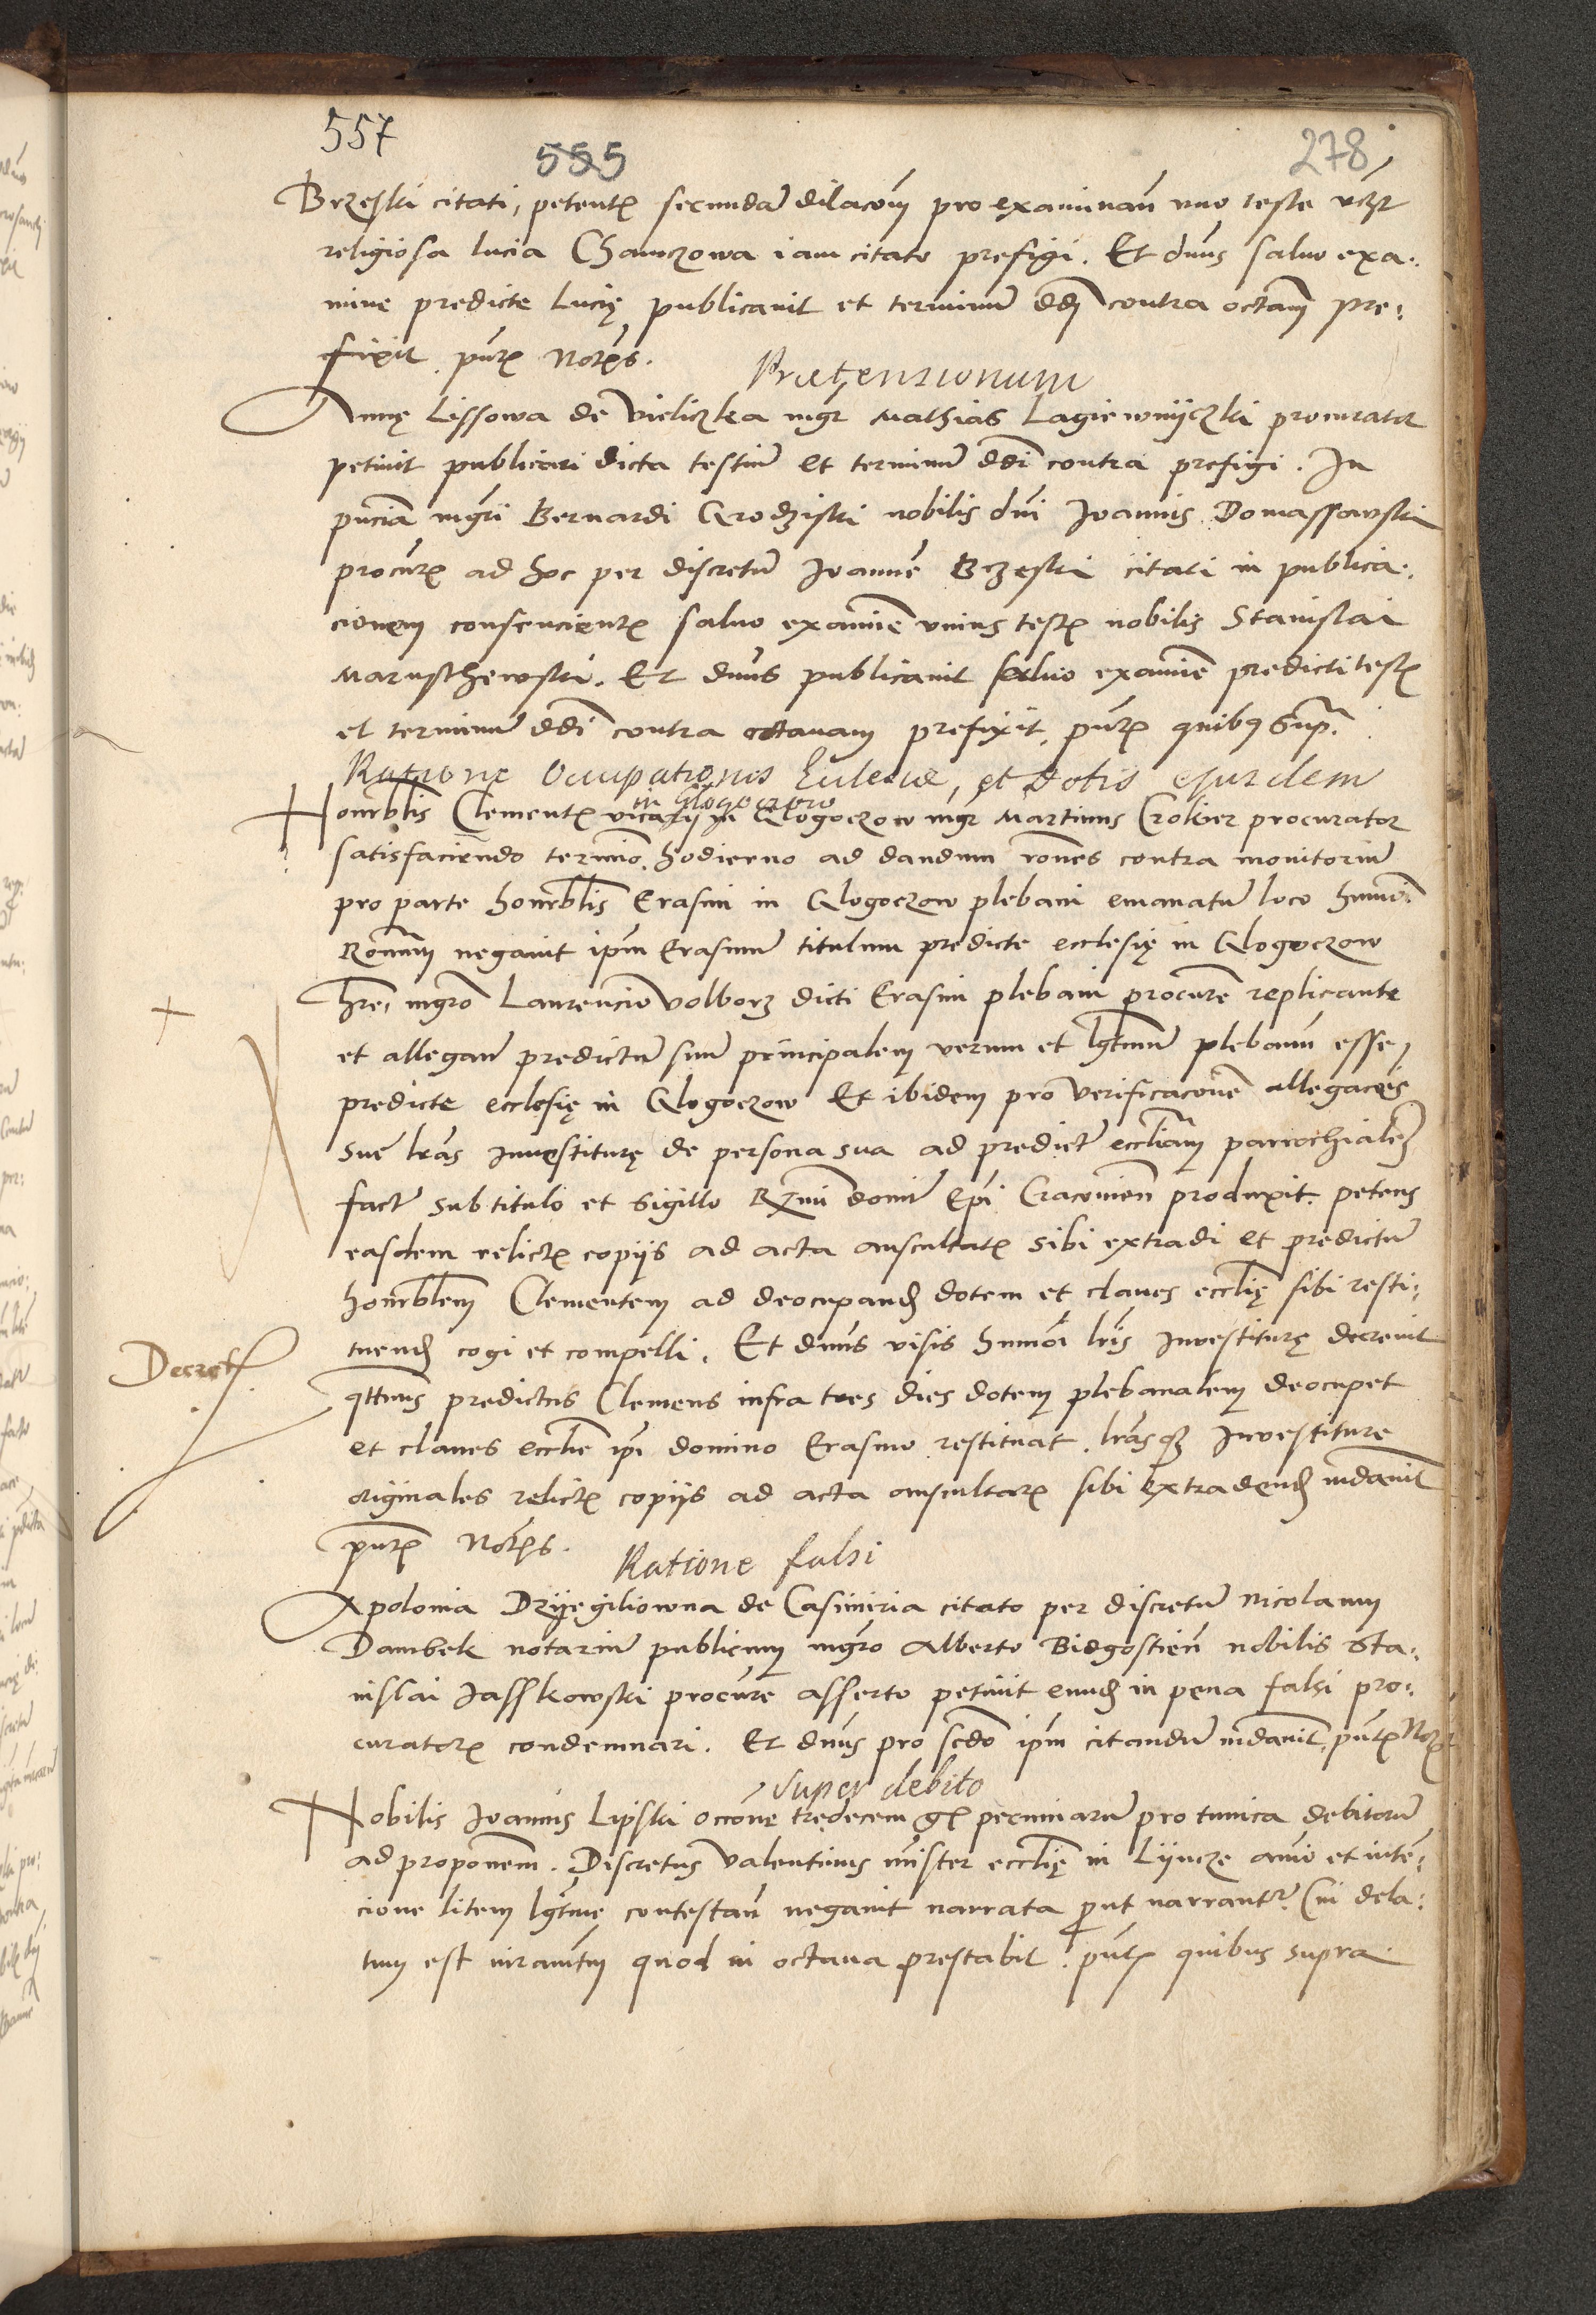 557
555
278
Brzeski citati, petente secundã dilacoẽm pro examinañ uno teste vcz
religiosa lucia Chamczowa iam citato prefigi. Et dnus saluo exa-
mine predicte Lucię publicauit et terminũ ddi contra octauã pre-
fixit pñte Notrs.
Prætensionum
Annę Lissowa de Vieliczka mgr Mathias Lagiewnijczki procurator
petiuit publicari dicta testiũ et terminũ ddi contra prefigi. In
pñcia mgri Bernardi Grodziski nobilis dni Joannis Domassowski
procure ad hoc per discretũ Joannẽ Brzeski citati in publica-
cionem consencienti saluo examiñe vnius testis nobilis Stanislai
Maruschewski. Et dnus publicauit saluo examiñe predicti testis
et terminũ ddi contra octauam prefixit, pñte quibus Sup.
Ratione Occupationis Ecclesiæ, et Dotis ejusdem
in Glogoczow
Honrblis Clementis vicarij in Glogoczow mgr Martinus Crokier procurator
satisfaciendo termino hodierno ad dandum rones contra monitoriũ
pro parte honrblis Erasmi in Glogoczow plebani emanatũ loco hmõi
Ronum negauit ipm Erasmũ titulum predicte ecclesię in Glogoczow
hre, mgro Laurencio Volborz dicti Erasmi plebani procure replicante
et allegañ predictũ suũ principalem verum et lgtimũ plebanũ esse
predicte ecclesię in Glogoczow Et ibidem pro verificacone allegacois
sue lras Inuestiturę de persona sua ad predict ecclîam parrochialem
fact sub titulo et sigillo Rxmi domi Epi Cracouien produxit petens
easdem relictis copijs ad acta auscultatis sibi extradi et predictũ
honrblem Clementem ad deocupand dotem et claues ecclię sibi resti-
tuend cogi et compelli. Et dnus visis hmõi lris Inuestiturę decreuit
Decret
qttnus predictus Clemens infra tres dies dotem plebanalem deocupet
et claues ecclie ipi domino Erasmo restituat, lrasqz Inuestiture
originales relictis copijs ad acta auscultatis sibi extradend mdauit
pñte Notrs.
Ratione falsi
Apolonia Dzijęgiliowna de Casimiria citato per discretũ Nicolaum
Dambek notariũ publicum mgro Alberto Bidgostien nobilis Sta-
nislai Jasskowski procure asserto petiuit eund in pena falsi pro-
curatoris condemnari. Et dnus pro scdo ipm citandũ mdauit, pñte Notrs
Super debito
Nobilis Joannis Lipski occone tredecem gs pecuniarũ pro tunica debitorũ
ad proponem. Discretus Valentinus mister ecclię in Lijncze animo et inten-
cione litem lgtime contestañ negauit narrata put narrantr. Cui dela-
tum est iuramtm quod in octaua prestabit. pñte quibus supra